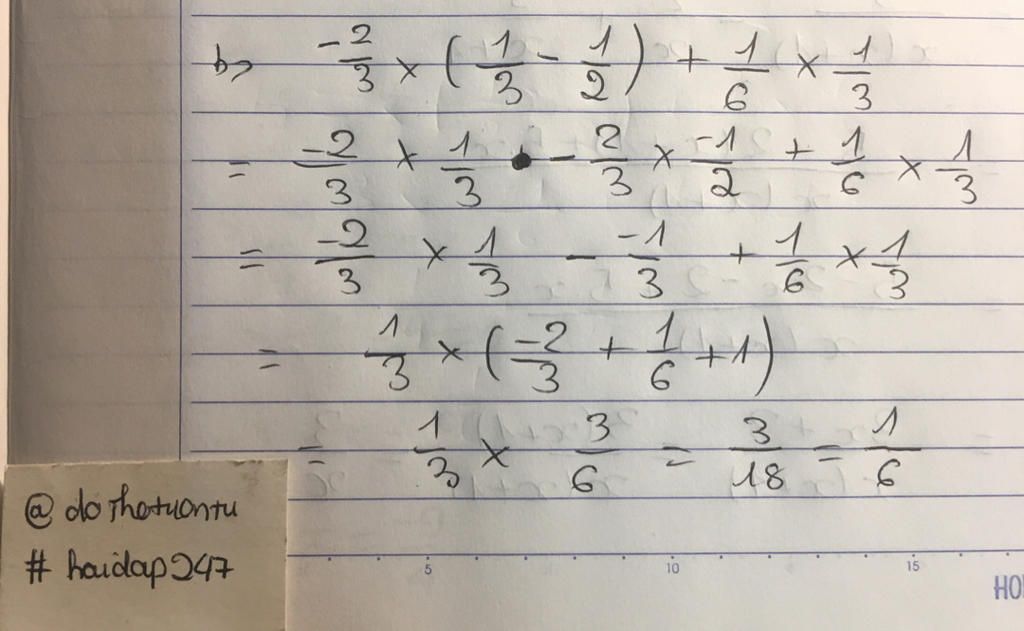 b, -2/3 × (1/3 - 1/2) + 1/6 × 1/3
= -2/3 × 1/3 - 2/3 × -1/2 + 1/6 × 1/3
= -2/3 × 1/3 - -1/3 + 1/6 × 1/3
= 1/3 × (-2/3 + 1/6 + 1)
= 1/3 × 3/6 = 3/18 = 1/6
@ dothetuontu
# hoidap247
5 10 15